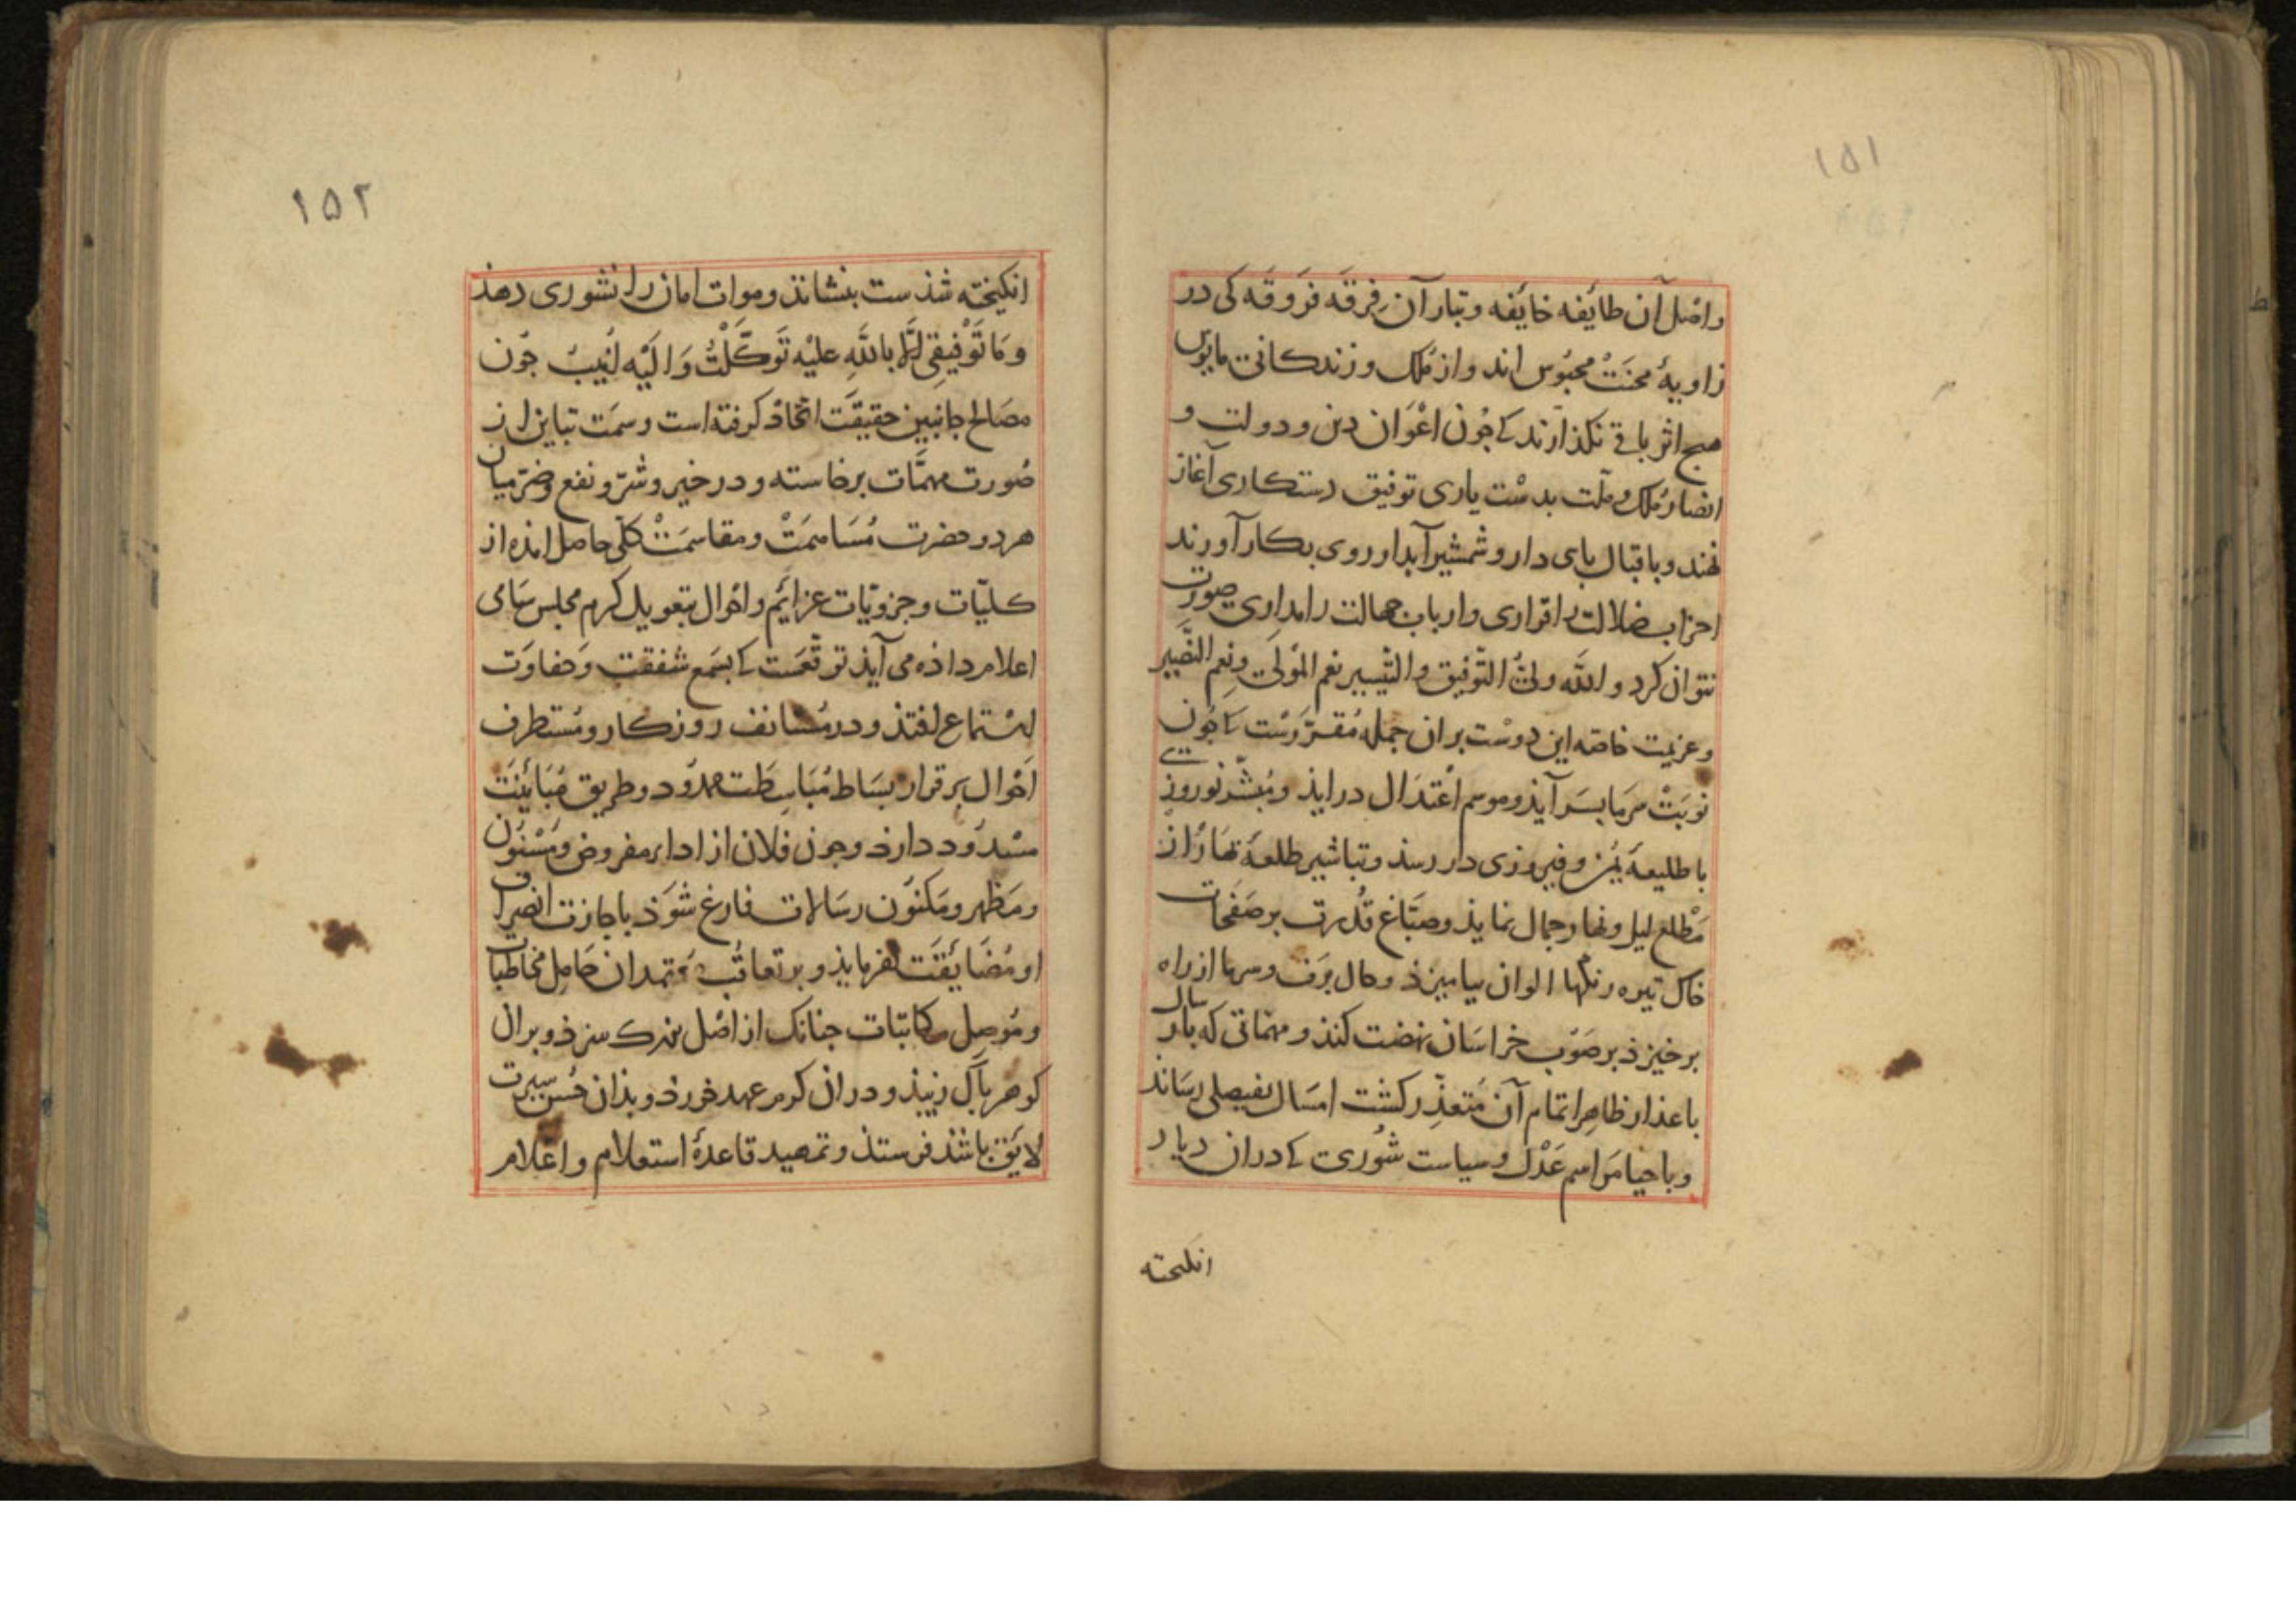 ۱۵۱
واصل آن طائفه خایفه و تبار آن فرقه فروقه کی در
زاویهٔ محنت محبوس اند و از ملک و زندکانی مایوس
هیچ اثر باقی نکذارند که جون اعوان دین و دولت و
انصار ملک و ملت بدست یاری توفیق دستکاری آغاز
نهند و باقبال پای دار و شمشیر آبدار روی بکار آورند
احزاب ضلالت را قراری و ارباب جهالت را مداری صورت
نتوان کرد و الله ولی التوفیق والتیسیر نعم المولی ونعم النصیر
و عزیمت خاصه این دوست بران جمله مقررست که جون
نوبت سرما بسر آیذ و موسم اعتدال درایذ و مبشر نوروزی
با طلیعهٔ یمن و فیروزی در رسذ و تباشیر طلعهٔ بهار از
مطلع لیل و نهار جمال نمایذ و صباغ قدرت بر صفحات
خاک تیره رنکها الوان بیامیزذ و حال برف و سرما از راه
برخیزذ بر صوب خراسان نهضت کنذ و مهماتی که پار سال
باعذار ظاهر اتمام آن متعذر کشت امسال بفیصلی رساند
و باحیا مراسم عدل و سیاست شوری که دران دیار
انکیخته
۱۵۲
انکیخته شذست بنشاند و موات امان را نشوری دهذ
وما توفیقی الا بالله علیه توکلت والیه انیب جون
مصالح جانبین حقیقت اتحاذ کرفته است و سمت تباین از
صورت مهمات برخاسته و در خیر و شر و نفع و ضر میان
هر دو حضرت مساهمت و مقاسمت کلی حاصل امذه از
کلیات و جزویات عزایم و احوال بتعویل کرم مجلس سامی
اعلام داذه می آیذ توقعست که بسمع شفقت و حفاوت
استماع افتذ و در مستانف روزکار و مستطرف
احوال بر قرار بساط مباسطت ممدود و طریق مباینت
مسدود دارد و جون فلان از اداء مفروض و مسنون
و مظهر و مکنون رسالات فارغ شوذ باجازت انصراف
او مضایقت نفرمایذ و بر تعاقب معتمدان حامل مخاطبات
و موصل مکاتبات جنانک از اصل بزرک سزذ و بران
کوهر پاک زیبذ و دران کرم عهد خورد و بذان حسن سیرت
لایق باشذ فرستذ و تمهید قاعدهٔ استعلام و اعلام